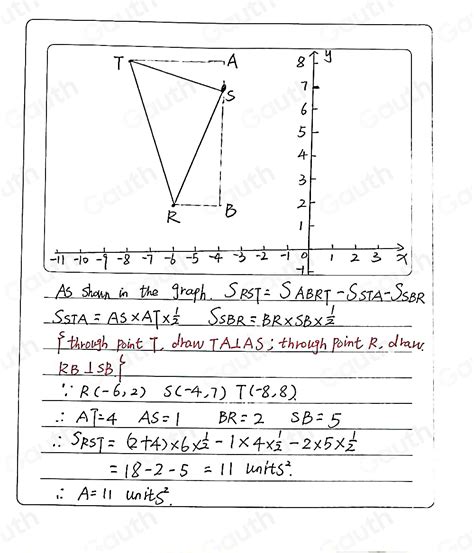 y
T A 8
7
S
6
5
4
3
R B 2
1
-11 -10 -9 -8 -7 -6 -5 -4 -3 -2 -1 0 1 2 3 x
-1
As shown in the graph. SRST = SABRT - SSTA - SSBR
SSTA = AS × AT × 1/2 SSBR = BR × SB × 1/2
{through point T, draw TA⊥AS; through point R, draw
RB⊥SB}
∵ R(-6,2) S(-4,7) T(-8,8)
∴ AT=4 AS=1 BR=2 SB=5
∴ SRST = (2+4)×6×1/2 - 1×4×1/2 - 2×5×1/2
= 18-2-5 = 11 units².
∴ A=11 units².
Gauth